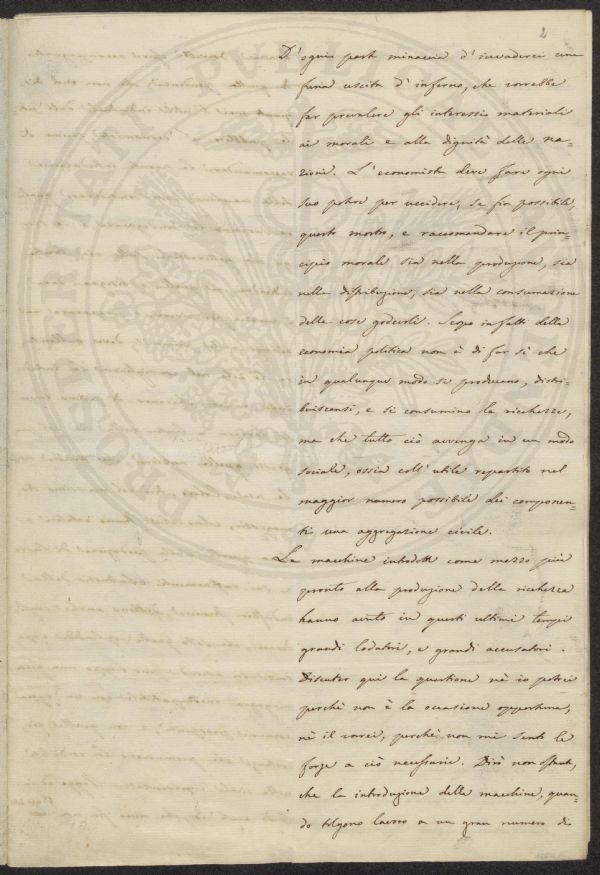 2
D'ogni parte minaccia d'invaderci una
furia uscita d'inferno, che vorrebbe
far prevalere gli interessi materiali
ai morali e alla dignità delle na-
zioni. L'economista deve fare ogni
suo potere per uccidere, se fia possibile,
questo mostro, e raccomandare il prin-
cipio morale sia nella produzione, sia
nella distribuzione, sia nella consumazione
delle cose godevoli. Scopo infatti della
economia politica non è di far sì che
in qualunque modo si producano, distri-
buiscansi, e si consumino le ricchezze,
ma che tutto ciò avvenga in un modo
sociale, ossia coll'utile repartito nel
maggior numero possibile dei componen-
ti una aggregazione civile.
Le macchine introdotte come mezzo più
pronto alla produzione della ricchezza
hanno avuto in questi ultimi tempi
grandi lodatori, e grandi accusatori.
Discuter qui la questione nè io potrei
perchè non è la occasione opportuna,
nè il vorrei, perchè non mi sento le
forze a ciò necessarie. Dirò non ostante,
che la introduzione delle macchine, quan-
do tolgono lavoro a un gran numero di
PROSPERITATI PUBL